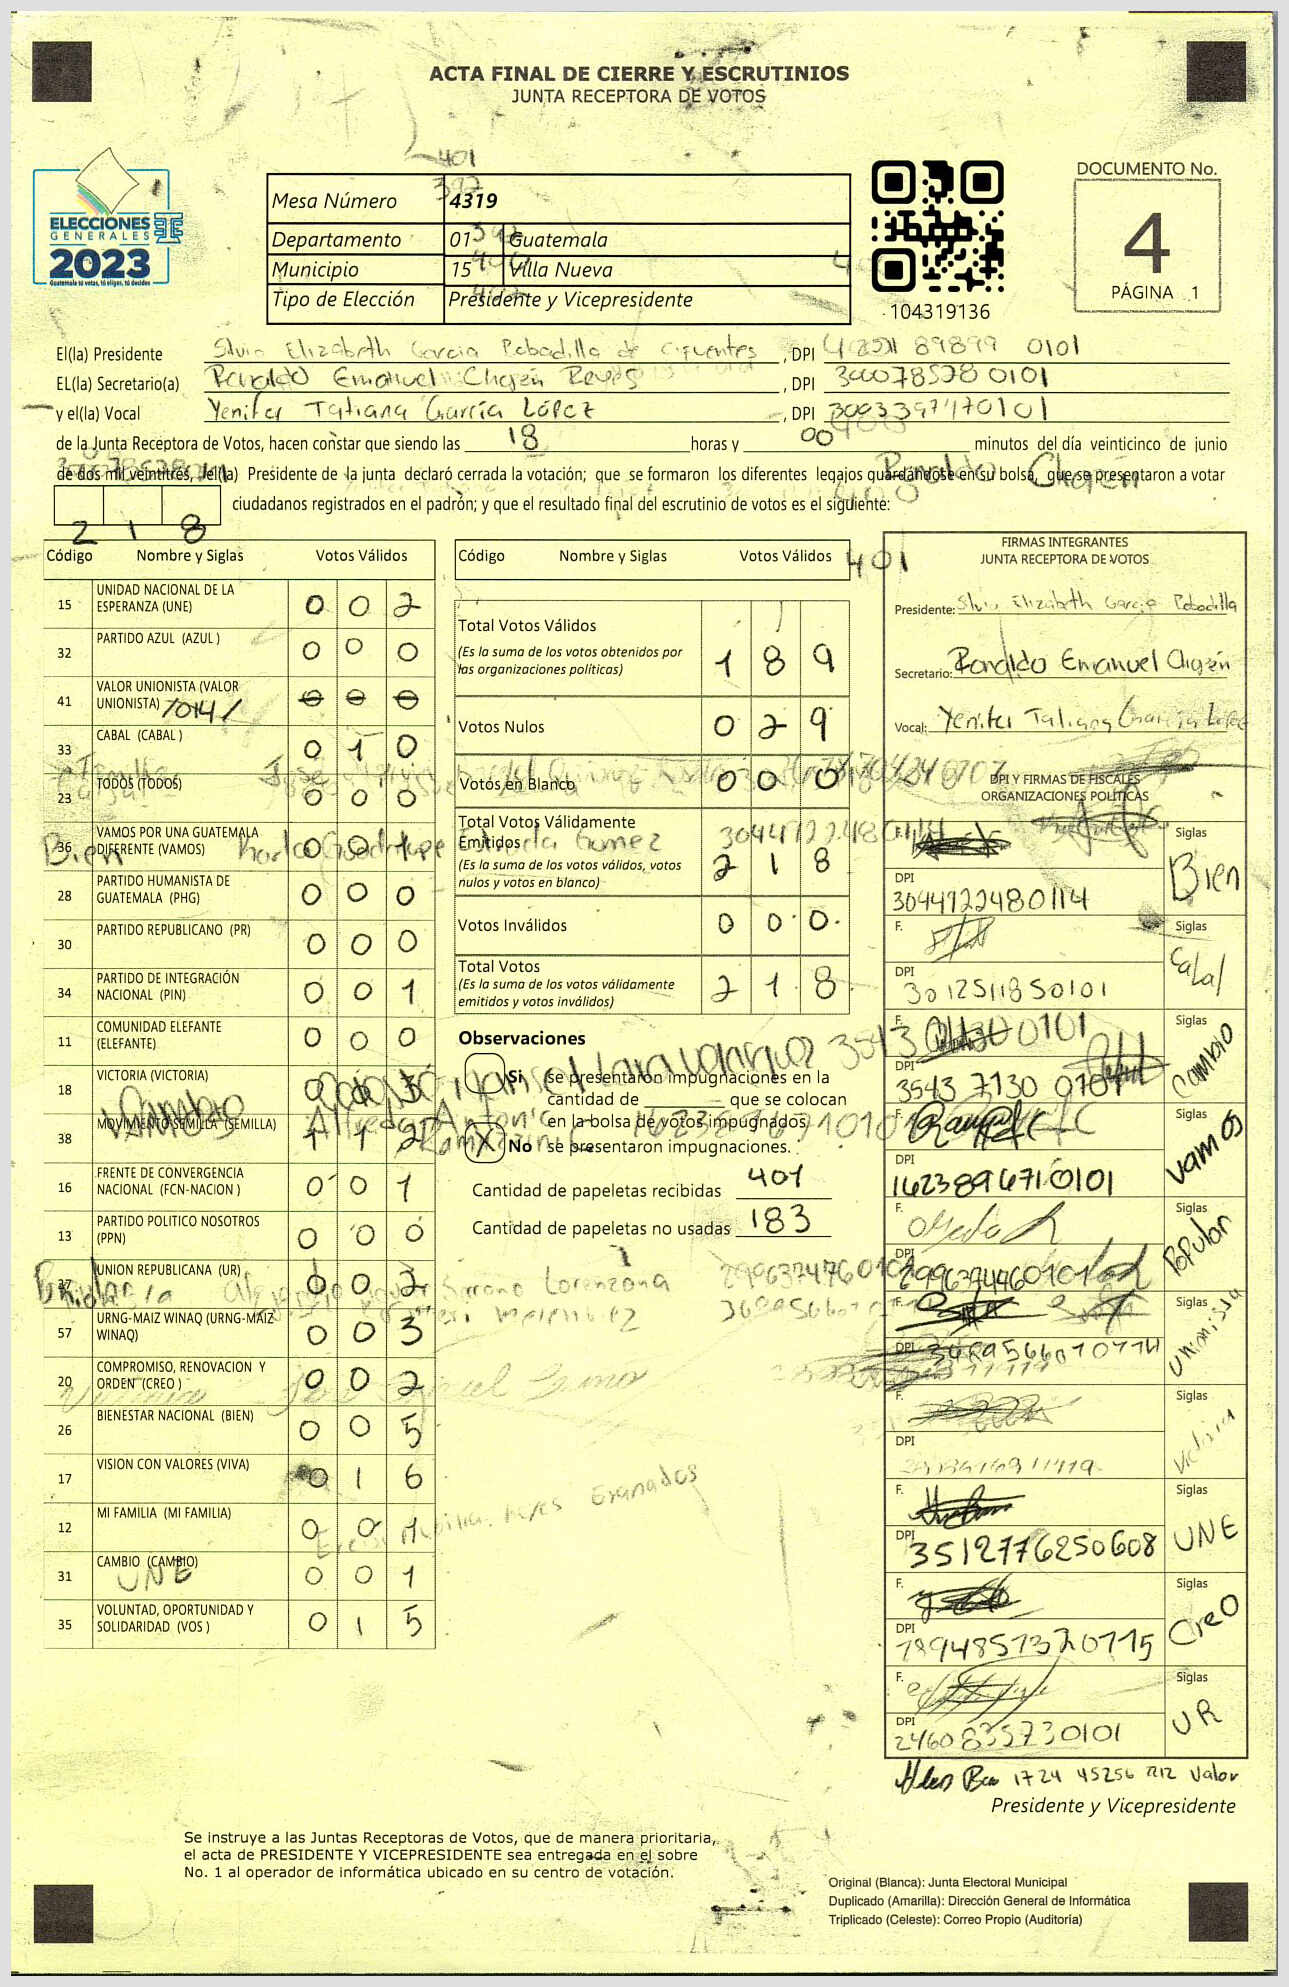 ACTA FINAL DE CIERRE Y ESCRUTINIOS
JUNTA RECEPTORA DE VOTOS
401
ELECCIONES
GENERALES
2023
Guatemala tú votas, tú eliges, tú decides
Mesa Número 4319
Departamento 01 Guatemala
Municipio 15 Villa Nueva
Tipo de Elección Presidente y Vicepresidente
104319136
DOCUMENTO No.
4
PÁGINA 1
El(la) Presidente Silvia Elizabeth Garcia Bobadilla de Cifuentes , DPI 89899 0101
EL(la) Secretario(a) Ronaldo Emanuel Chajén Reyes , DPI 300078528 0101
y el(la) Vocal Yenifer Tatiana García López , DPI 3003397470101
de la Junta Receptora de Votos, hacen constar que siendo las 18 horas y 00 minutos del día veinticinco de junio
de dos mil veintitres, el(la) Presidente de la junta declaró cerrada la votación; que se formaron los diferentes legajos guardándose en su bolsa, que se presentaron a votar
Ronaldo Chajén
218 ciudadanos registrados en el padrón; y que el resultado final del escrutinio de votos es el siguiente:
Código Nombre y Siglas Votos Válidos
15 UNIDAD NACIONAL DE LA ESPERANZA (UNE) 0 0 2
32 PARTIDO AZUL (AZUL ) 0 0 0
41 VALOR UNIONISTA (VALOR UNIONISTA) 0 0 0
33 CABAL (CABAL ) 0 1 0
23 TODOS (TODOS) 0 0 0
36 VAMOS POR UNA GUATEMALA DIFERENTE (VAMOS) 0 0 1
28 PARTIDO HUMANISTA DE GUATEMALA (PHG) 0 0 0
30 PARTIDO REPUBLICANO (PR) 0 0 0
34 PARTIDO DE INTEGRACIÓN NACIONAL (PIN) 0 0 1
11 COMUNIDAD ELEFANTE (ELEFANTE) 0 0 0
18 VICTORIA (VICTORIA)
38 MOVIMIENTO SEMILLA (SEMILLA) 1 1 2
16 FRENTE DE CONVERGENCIA NACIONAL (FCN-NACION ) 0 0 1
13 PARTIDO POLITICO NOSOTROS (PPN) 0 0 0
27 UNION REPUBLICANA (UR) 0 0 2
57 URNG-MAIZ WINAQ (URNG-MAIZ WINAQ) 0 0 3
20 COMPROMISO, RENOVACION Y ORDEN (CREO ) 0 0 2
26 BIENESTAR NACIONAL (BIEN) 0 0 5
17 VISION CON VALORES (VIVA) 0 1 6
12 MI FAMILIA (MI FAMILIA) 0 0 1
31 CAMBIO (CAMBIO) 0 0 1
UNE
35 VOLUNTAD, OPORTUNIDAD Y SOLIDARIDAD (VOS ) 0 1 5
Código Nombre y Siglas Votos Válidos
401
Total Votos Válidos 1 8 9
(Es la suma de los votos obtenidos por
las organizaciones políticas)
Votos Nulos 0 2 9
Votos en Blanco 0 0 0
Bien Karla Guadalupe Gomez 3044722480114
Total Votos Válidamente
Emitidos 2 1 8
(Es la suma de los votos válidos, votos
nulos y votos en blanco)
Votos Inválidos 0 0 0
Total Votos 2 1 8
(Es la suma de los votos válidamente
emitidos y votos inválidos)
Observaciones
Si se presentaron impugnaciones en la
cantidad de ______ que se colocan
en la bolsa de votos impugnados.
X No se presentaron impugnaciones.
Cantidad de papeletas recibidas 401
Cantidad de papeletas no usadas 183
FIRMAS INTEGRANTES
JUNTA RECEPTORA DE VOTOS
Presidente: Silvia Elizabeth Garcia Bobadilla
Secretario: Ronaldo Emanuel Chajén
Vocal: Yenifer Tatiana García López
DPI Y FIRMAS DE FISCALES
ORGANIZACIONES POLÍTICAS
F. Siglas Bien
DPI 3044722480114
F. Siglas Cabal
DPI 3012511850101
F. Siglas Cambio
DPI 3543 7130 0101
F. Siglas Vamos
DPI 1623896710101
F. Siglas Popular
DPI 2996374760101
F. Siglas Unionista
DPI
F. Siglas Victoria
DPI
F. Siglas UNE
DPI 3512776250608
F. Siglas Creo
DPI
F. Siglas UR
DPI 2460835730101
1724 45256 Valor
Presidente y Vicepresidente
Se instruye a las Juntas Receptoras de Votos, que de manera prioritaria,
el acta de PRESIDENTE Y VICEPRESIDENTE sea entregada en el sobre
No. 1 al operador de informática ubicado en su centro de votación.
Original (Blanca): Junta Electoral Municipal
Duplicado (Amarilla): Dirección General de Informática
Triplicado (Celeste): Correo Propio (Auditoría)